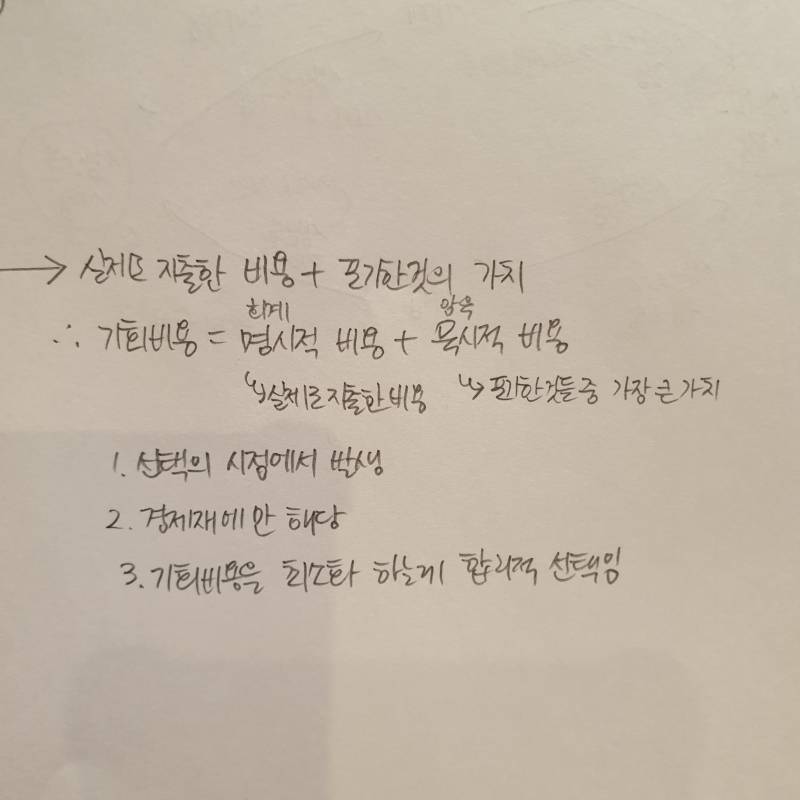 → 실제로 지출한 비용 + 포기한것의 가치
회계 암묵
∴ 기회비용 = 명시적 비용 + 묵시적 비용
↳실제로지출한비용 ↳포기한것들중 가장큰가치
1. 선택의 시점에서 발생
2. 경제재에만 해당
3. 기회비용을 최소화 하는게 합리적 선택임